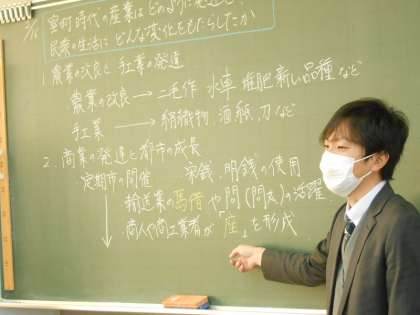 室町時代の産業はどのように発達し、
民衆の生活にどんな変化をもたらしたか
1. 農業の改良と手工業の発達
農業の改良→二毛作 水車 堆肥 新しい品種など
手工業→絹織物、酒、紙、刀など
2. 商業の発達と都市の成長
定期市の開催 宋銭、明銭の使用
輸送業の馬借や問(問丸)の活躍
商人や商工業者が「座」を形成